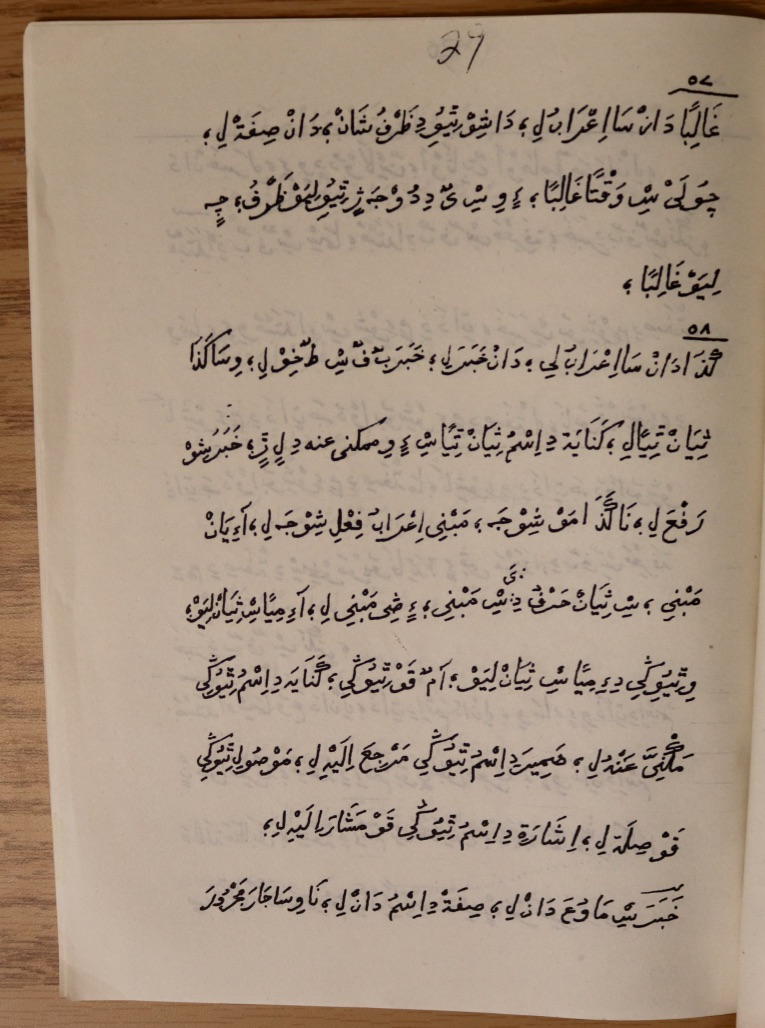 29
٥٧
غَالِبًا دَانْ سَا اِعْرَابُ لِ؛ دَا شِوْرِتِيُوِ دِ ظَرْفُ شَانْ؛ دَانْ صِفَةْ لِ؛
چِوُ لَىْ سِْ وَقْتًا غَالِبًا؛ ءِ وِ سِْ ىّ دِ دُ وْجَه رِْ تِيُوِ لِمَوْ ظَرْفُ؛ چِه
لِيَوْ غَالِبًا؛
٥٨
كَذَا دَانْ سَا اِعْرَابُ لِى؛ دَانْ خَبَرَ لِ؛ خَبَرَ بّ فّ سِْ طّ خِوْ لِ؛ وِ سَا كَذَا
ثِيَانْ تِيَالِ؛ كَنَايَة دِ اِسْمُ ثِيَانْ تِيَاسِْ ءِ وِ ممكنى عنه دِ لِ رِّ؛ خَبَرُ شِوْ
رَفْعَ لِ؛ نَا كَذَا مَوْ شِوْ جَه؛ مَبْنِى اِعْرَابُ فِعْلِ شِوْ جَه لِ؛ آءِ يَانْ
مَبْنِى؛ سِْ ثِيَانْ حَرْفُ دِ سِْ مَبْنِى؛ ءِ ضِى مَبْنِى لِ؛ آءِ مِيَاسِْ ثِيَانْ لِيَوْ؛
وِ تِيُوِكِى دِءِ مِيَاسِْ ثِيَانْ لِيَوْ؛ اَمّ قَوْ تِيُوكِى؛ كَنَايَه دِ اِسْمُ تِيُوكِى
مَكْنِىَّ عَنْهُ لِ؛ ضَمِيرَ دِ اِسْمُ تِيُوكِى مَرْجِعَ اِلَيْهِ لِ؛ مَوْصُولِ تِيُوكِى
قَوْ صِلَة لِ؛ اِشَارَة دِ اِسْمُ تِيُوكِى قَوْ مَشَارَ اِلَيْهِ لِ؛
خَبَرَ سِْ مَا وُعَ دَانْ لِ؛ صِفَةْ دِ اِسْمُ دَانْ لِ؛ نَا وِ سَا جَارَ مَجْرُورَ